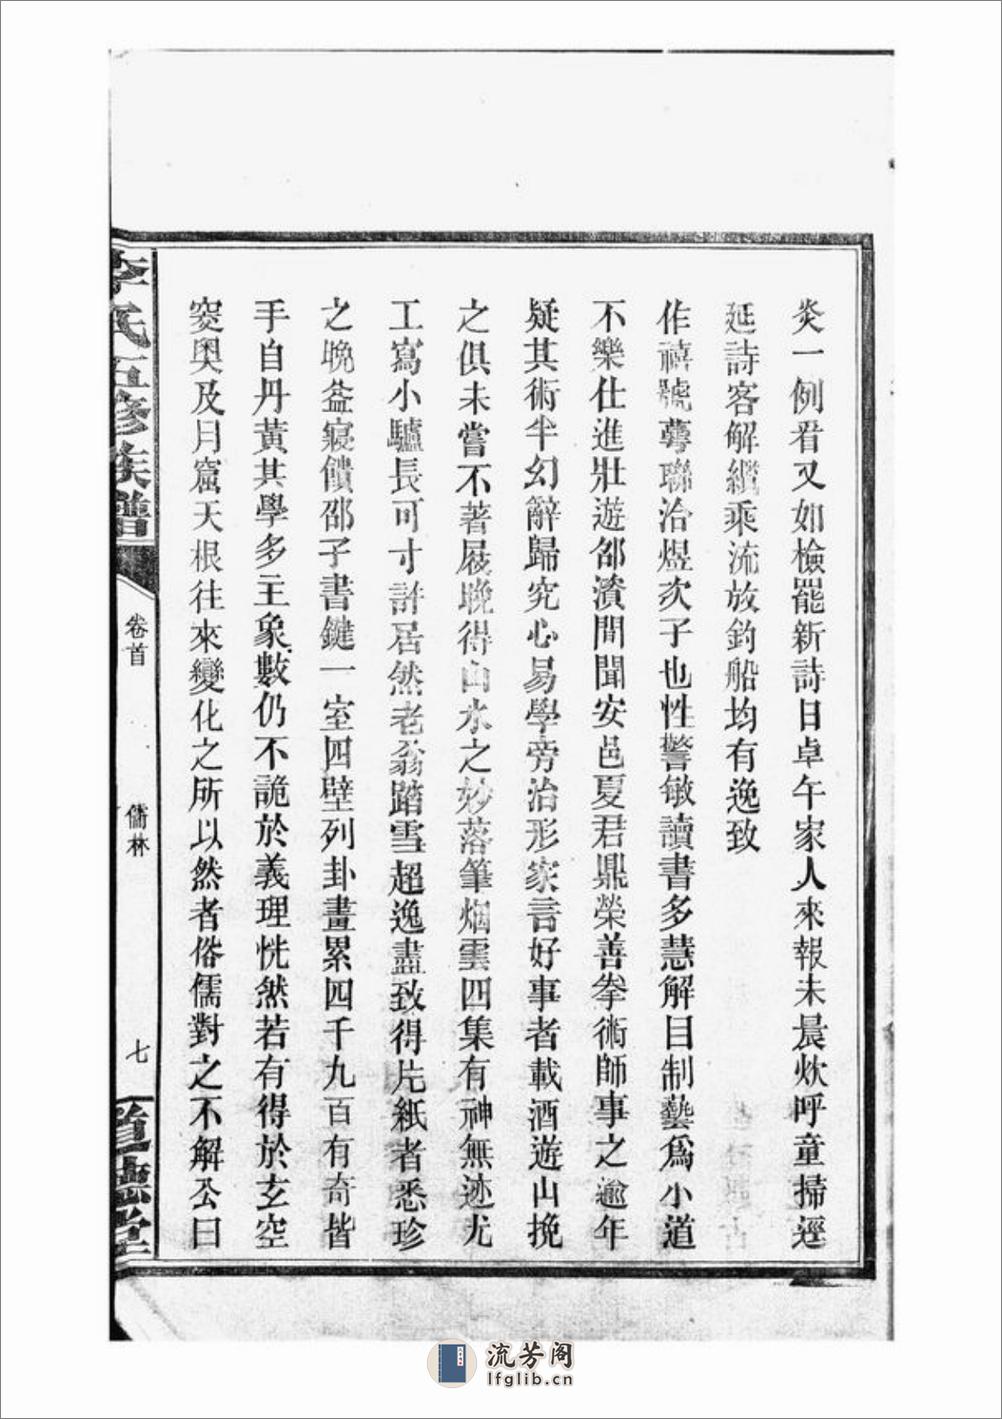 炎一例看又如檢罷新詩日卓午家人來報未晨炊呼童掃逕
延詩客解纜乘流放釣船均有逸致
作禧號蕚聯治煜次子也性警敏讀書多慧解目制藝爲小道
不樂仕進壯遊郃濱間聞安邑夏君鼎榮善拳術師事之逾年
疑其術半幻辭歸究心易學旁治形家言好事者載酒遊山挽
之俱未嘗不著屐晚得山水之妙落筆烟雲四集有神無迹尤
工寫小驢長可寸許居然老翁踏雪超逸盡致得片紙者悉珍
之晚益寢饋邵子書鍵一室四壁列卦畫累四千九百有奇皆
手自丹黃其學多主象數仍不詭於義理恍然若有得於玄空
窔奧及月窟天根往來變化之所以然者俗儒對之不解公曰
李氏五修族譜
卷首
儒林
七
流芳阁
lfglib.cn